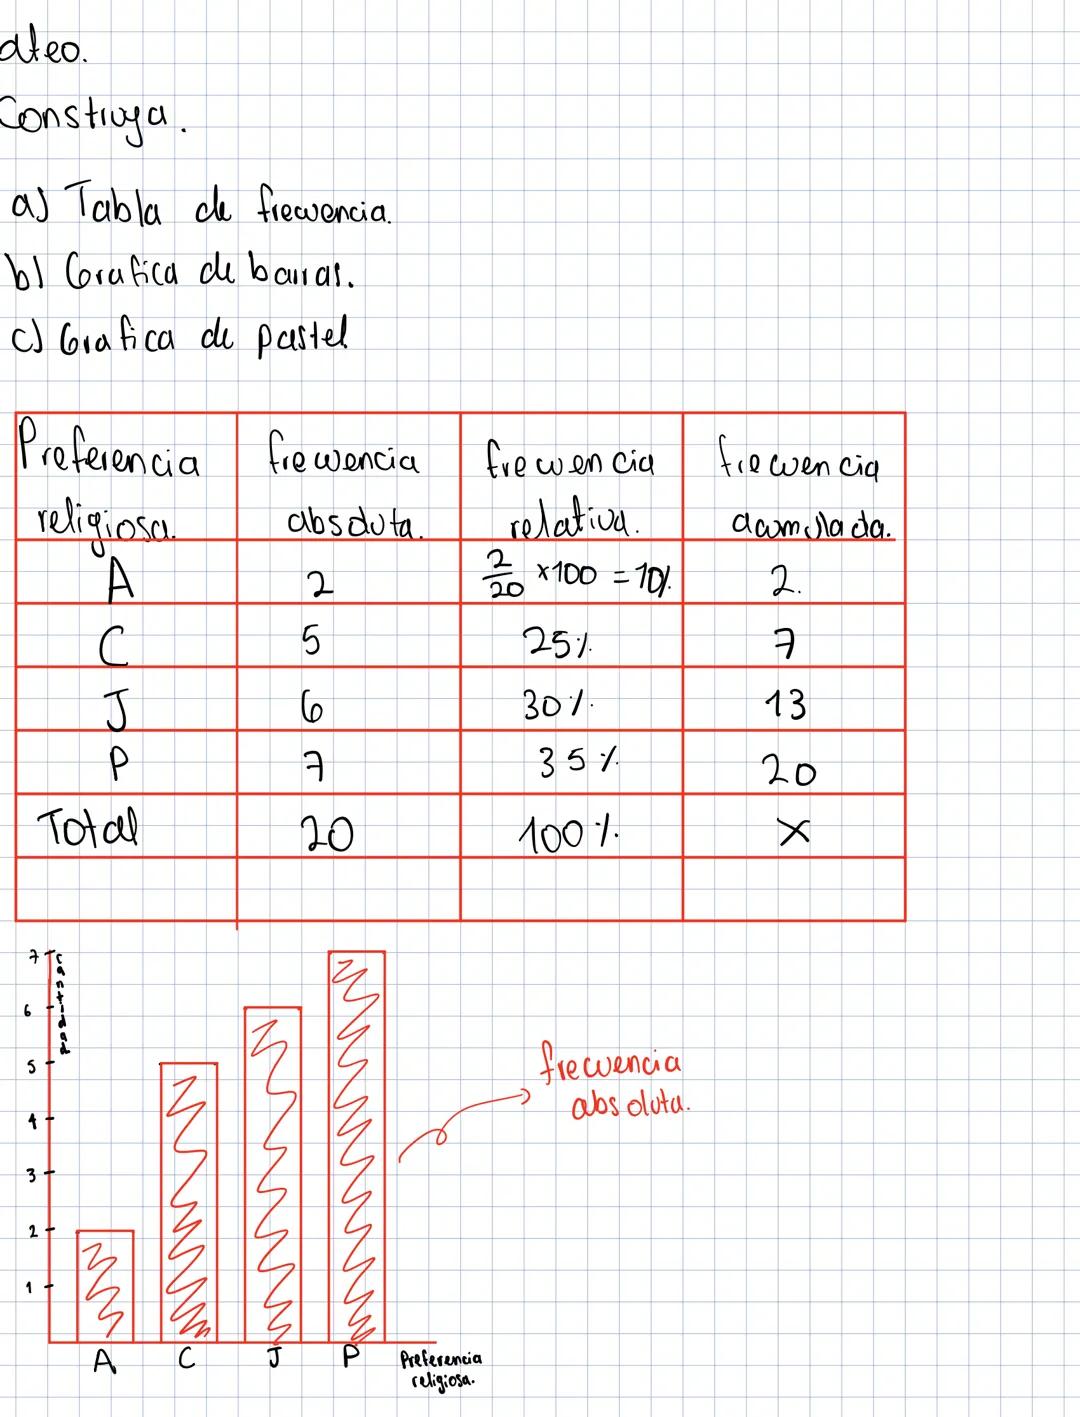 ateo.
Construya.
a) Tabla de frecuencia.
b) Grafica de barras.
c) Grafica de pastel
Preferencia religiosa. frecuencia absoluta. frecuencia relativa. frecuencia acumulada.
A 2 2/20 x100 = 10% 2.
C 5 25% 7
J 6 30% 13
P 7 35% 20
Total 20 100% X
cantidad
7
6
5
4
3
2
1
frecuencia
absoluta.
A C J P Preferencia
religiosa.